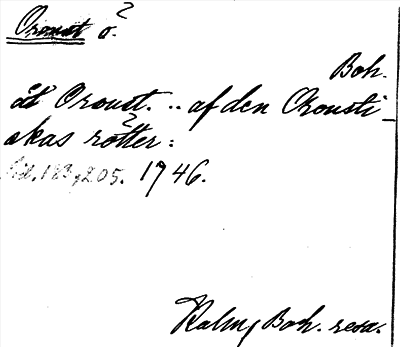 Oroust ö.
Boh.
åt Oroust. .. af den Orousti-
skas rötter:
Sid. 123, 205. 1746.
Kalm, Boh. resa.